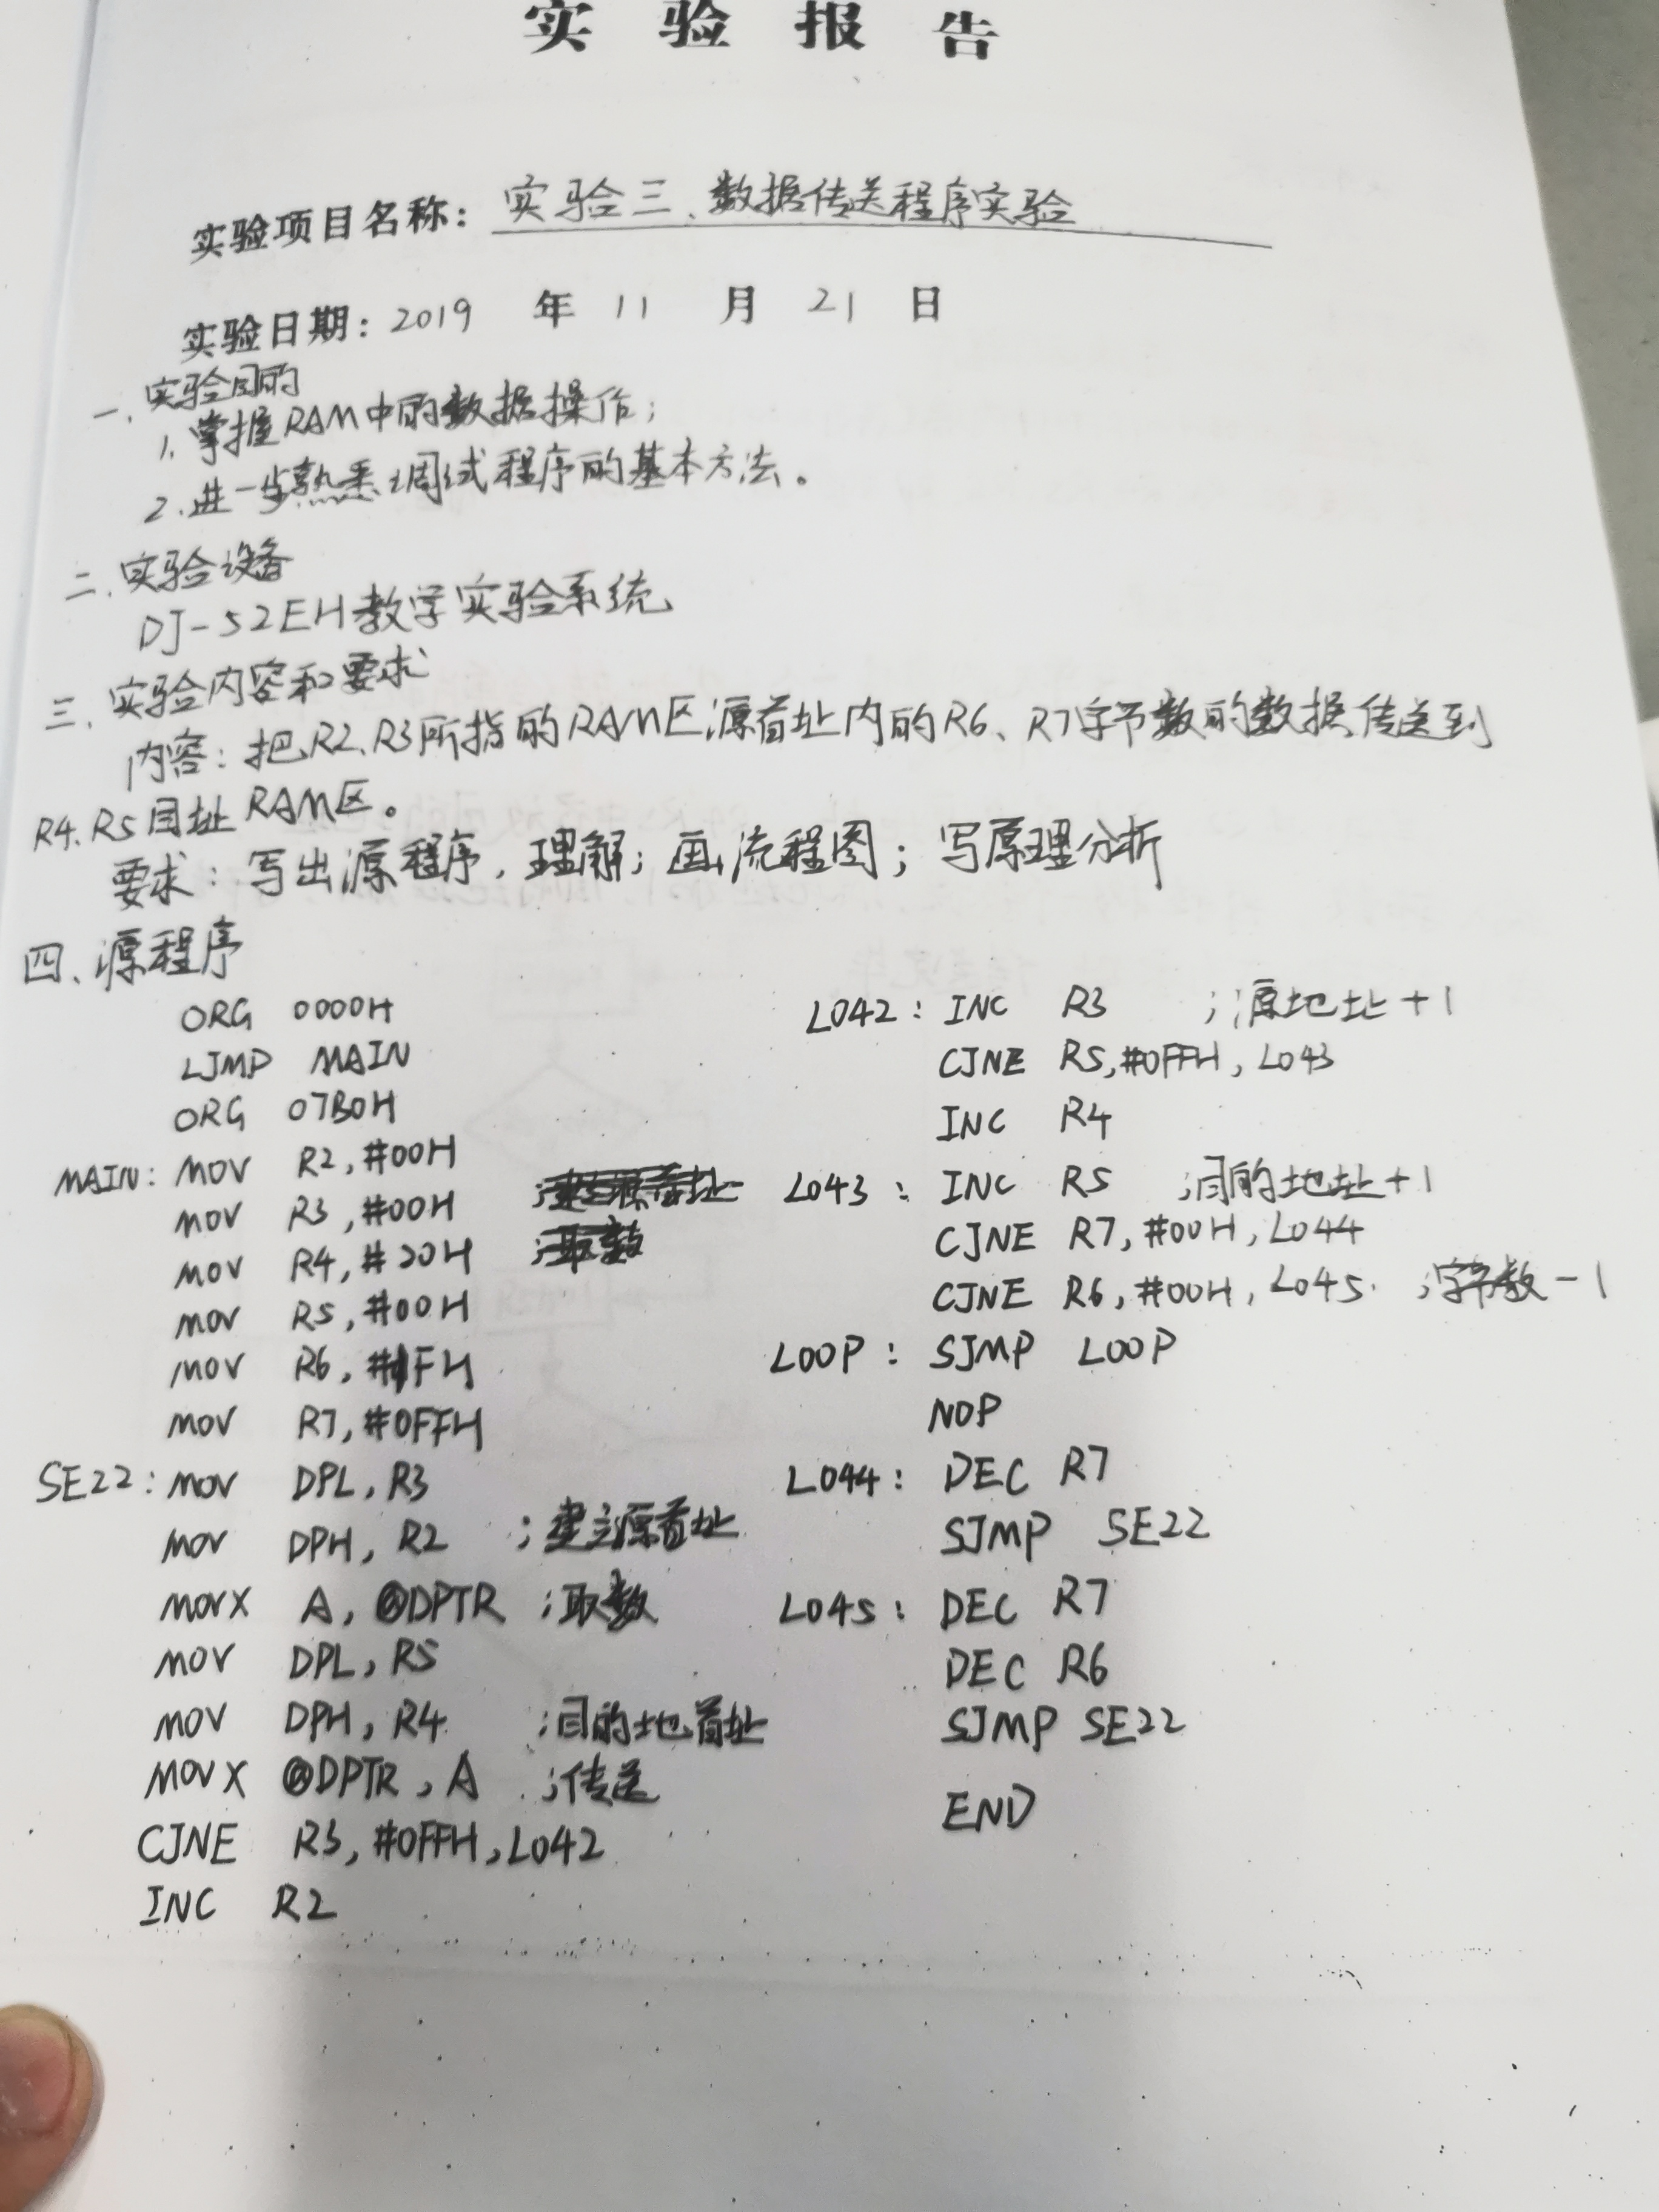 实验报告
实验项目名称：实验三、数据传送程序实验
实验日期：2019 年 11 月 21 日
一、实验目的
1、掌握RAM中的数据操作；
2、进一步熟悉调试程序的基本方法。
二、实验设备
DJ-52EH教学实验系统
三、实验内容和要求
内容：把R2、R3所指的RAM区源首址内的R6、R7字节数的数据传送到
R4、R5目址RAM区。
要求：写出源程序，理解；画流程图；写原理分析
四、源程序
ORG 0000H
LJMP MAIN
ORG 07B0H
MAIN: MOV R2,#00H
MOV R3,#00H
MOV R4,#20H
MOV R5,#00H
MOV R6,#1FH
MOV R7,#0FFH
SE22: MOV DPL,R3
MOV DPH,R2 ;建立源首址
MOVX A,@DPTR ;取数
MOV DPL,R5
MOV DPH,R4 ;目的地首址
MOVX @DPTR,A ;传送
CJNE R3,#0FFH,L042
INC R2
L042: INC R3 ;源地址+1
CJNE R5,#0FFH,L043
INC R4
L043: INC R5 ;目的地址+1
CJNE R7,#00H,L044
CJNE R6,#00H,L045 ;字节数-1
LOOP: SJMP LOOP
NOP
L044: DEC R7
SJMP SE22
L045: DEC R7
DEC R6
SJMP SE22
END